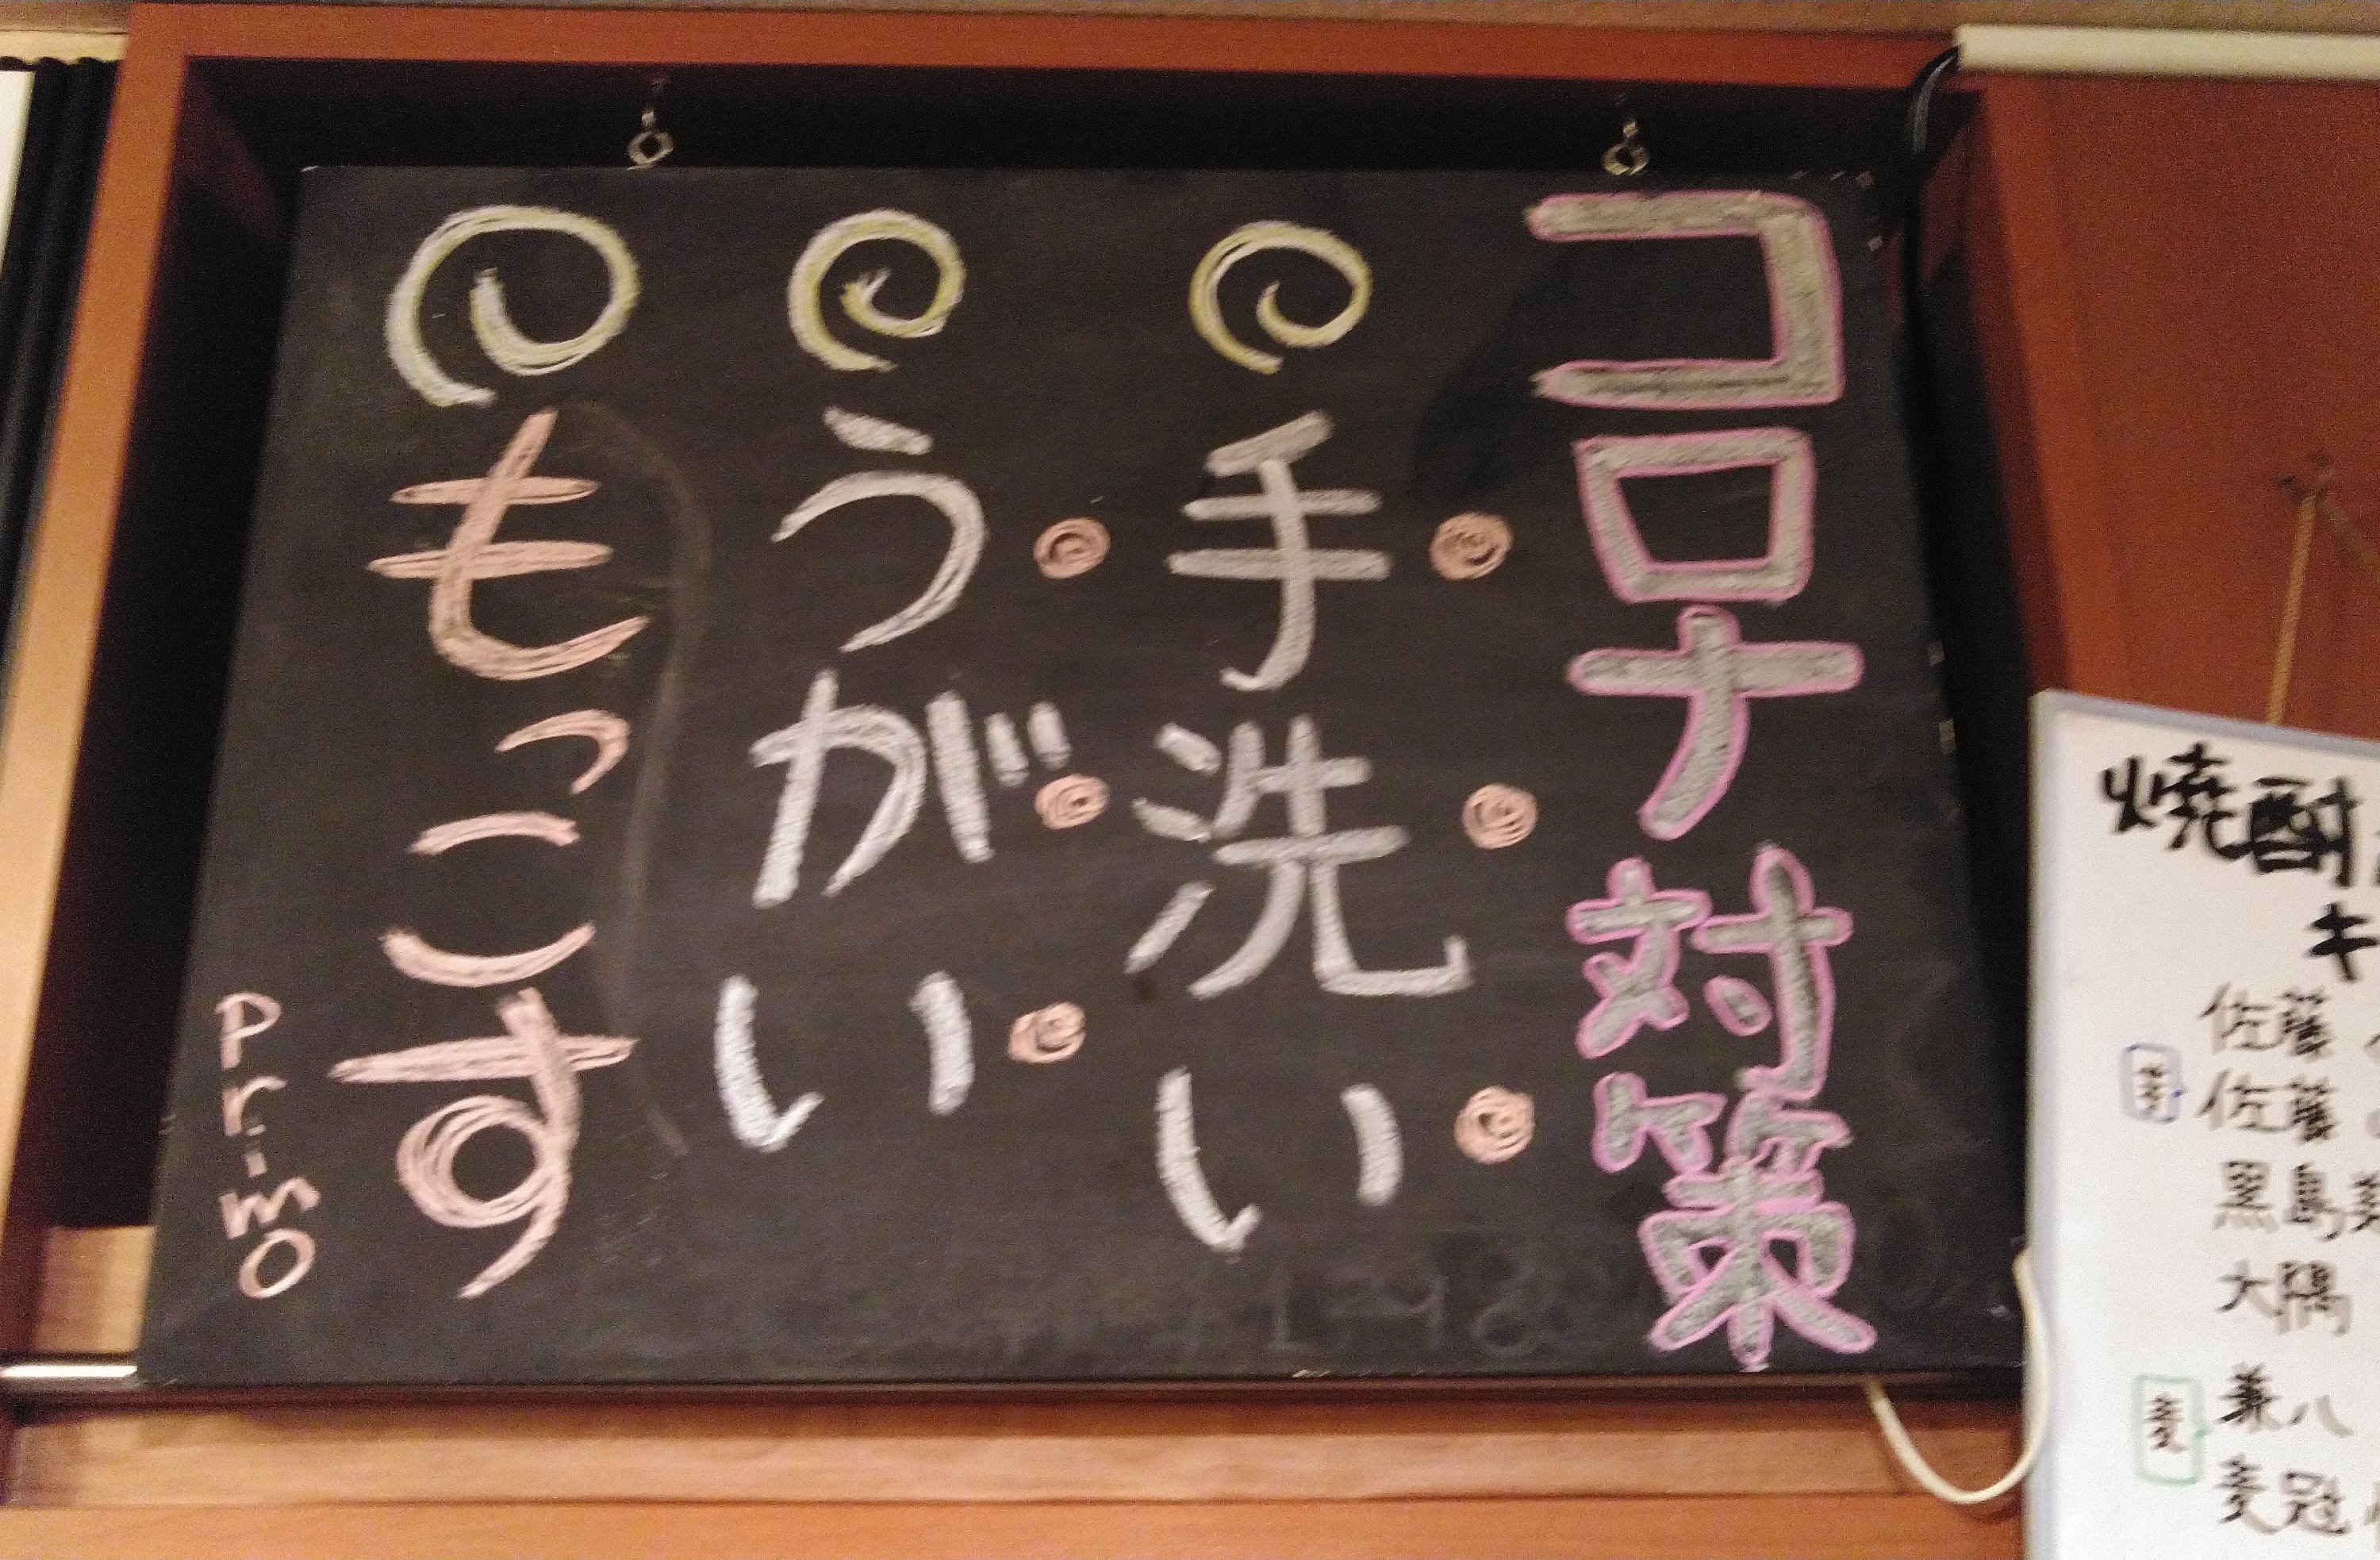 コロナ対策
手洗い
うがい
もっこす
primo
焼酎
キ
佐藤
佐藤
黒島
大隅
兼八
麦
麦冠